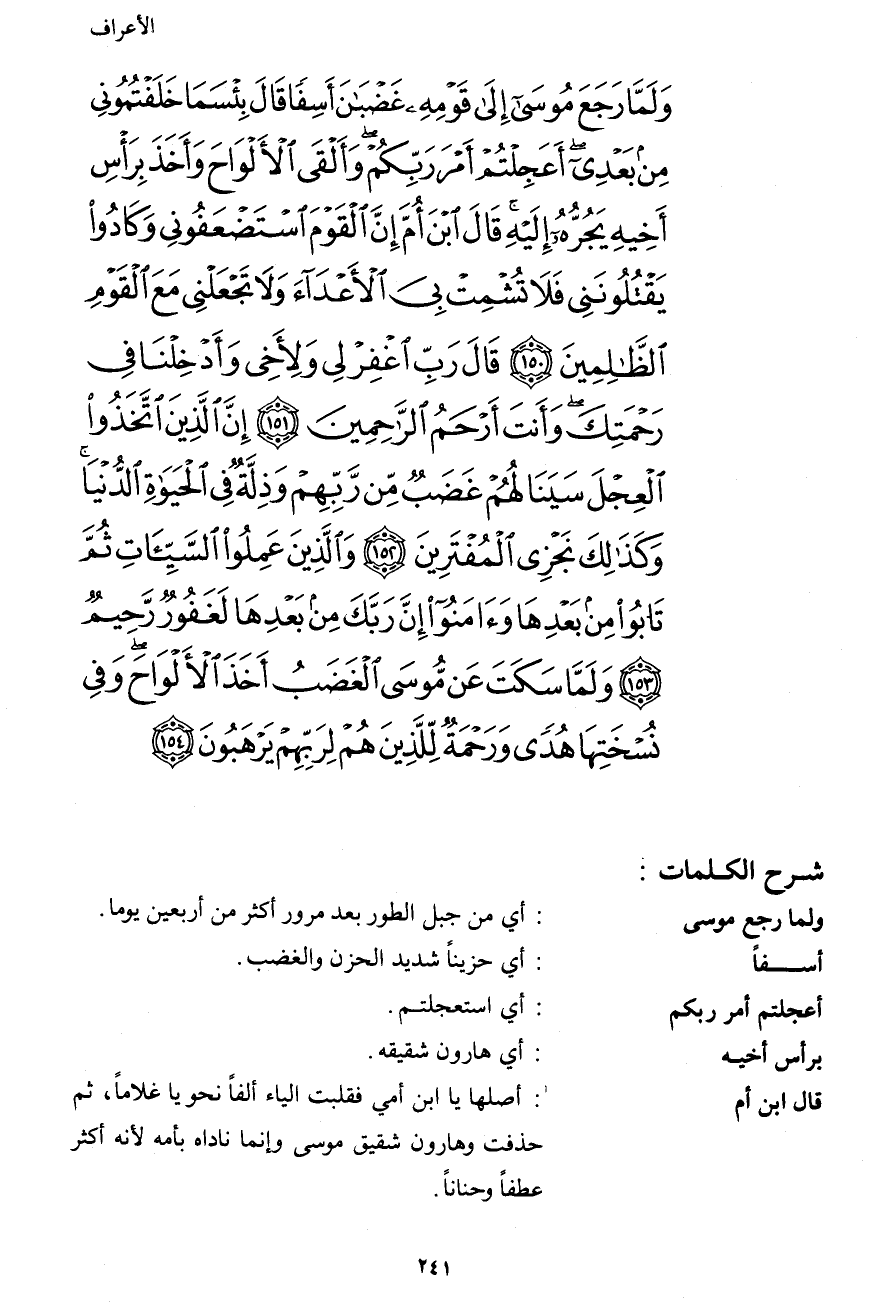 الأعراف
وَلَمَّا رَجَعَ مُوسَىٰٓ إِلَىٰ قَوْمِهِۦ غَضْبَـٰنَ أَسِفًا قَالَ بِئْسَمَا خَلَفْتُمُونِى
مِنۢ بَعْدِىٓ ۖ أَعَجِلْتُمْ أَمْرَ رَبِّكُمْ ۖ وَأَلْقَى ٱلْأَلْوَاحَ وَأَخَذَ بِرَأْسِ
أَخِيهِ يَجُرُّهُۥٓ إِلَيْهِ ۚ قَالَ ٱبْنَ أُمَّ إِنَّ ٱلْقَوْمَ ٱسْتَضْعَفُونِى وَكَادُوا۟
يَقْتُلُونَنِى فَلَا تُشْمِتْ بِىَ ٱلْأَعْدَآءَ وَلَا تَجْعَلْنِى مَعَ ٱلْقَوْمِ
ٱلظَّـٰلِمِينَ ١٥٠ قَالَ رَبِّ ٱغْفِرْ لِى وَلِأَخِى وَأَدْخِلْنَا فِى
رَحْمَتِكَ ۖ وَأَنتَ أَرْحَمُ ٱلرَّٰحِمِينَ ١٥١ إِنَّ ٱلَّذِينَ ٱتَّخَذُوا۟
ٱلْعِجْلَ سَيَنَالُهُمْ غَضَبٌ مِّن رَّبِّهِمْ وَذِلَّةٌ فِى ٱلْحَيَوٰةِ ٱلدُّنْيَا ۚ
وَكَذَٰلِكَ نَجْزِى ٱلْمُفْتَرِينَ ١٥٢ وَٱلَّذِينَ عَمِلُوا۟ ٱلسَّيِّـَٔاتِ ثُمَّ
تَابُوا۟ مِنۢ بَعْدِهَا وَءَامَنُوٓا۟ إِنَّ رَبَّكَ مِنۢ بَعْدِهَا لَغَفُورٌ رَّحِيمٌ
١٥٣ وَلَمَّا سَكَتَ عَن مُّوسَى ٱلْغَضَبُ أَخَذَ ٱلْأَلْوَاحَ ۖ وَفِى
نُسْخَتِهَا هُدًى وَرَحْمَةٌ لِّلَّذِينَ هُمْ لِرَبِّهِمْ يَرْهَبُونَ ١٥٤
شـرح الكـلمات :
ولما رجع موسى : أي من جبل الطور بعد مرور أكثر من أربعين يوما.
أســـفاً : أي حزيناً شديد الحزن والغضب.
أعجلتم أمر ربكم : أي استعجلتـم.
برأس أخيـه : أي هارون شقيقه.
قال ابن أم : أصلها يا ابن أمي فقلبت الياء ألفاً نحو يا غلاماً، ثم
حذفت وهارون شقيق موسى وإنما ناداه بأمه لأنه أكثر
عطفاً وحناناً.
٢٤١